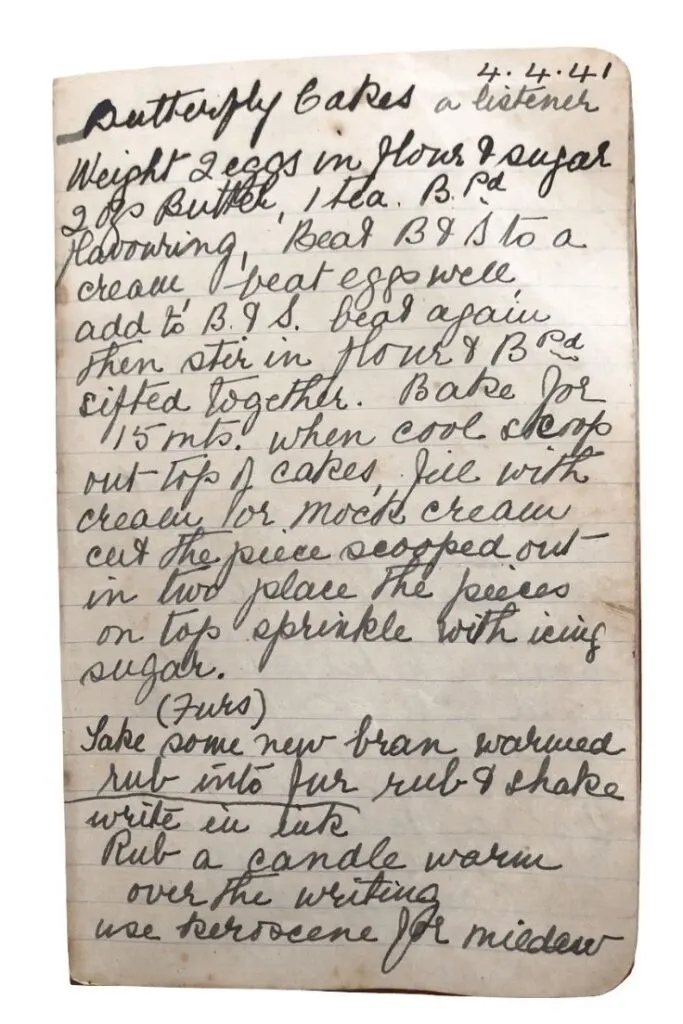 4.4.41
Butterfly Cakes a listener
Weight 2 eggs in flour & sugar
2 ozs Butter, 1 tea. B.Pd
flavouring, Beat B & S to a
cream, beat eggs well,
add to B. & S. beat again
then stir in flour & B Pd
sifted together. Bake for
15 mts. when cool scoop
out top of cakes, fill with
cream or mock cream
cut the piece scooped out
in two place the pieces
on top sprinkle with icing
sugar.
(Furs)
Take some new bran warmed
rub into fur rub & shake
write in ink
Rub a candle warm
over the writing
use keroscene for mildew